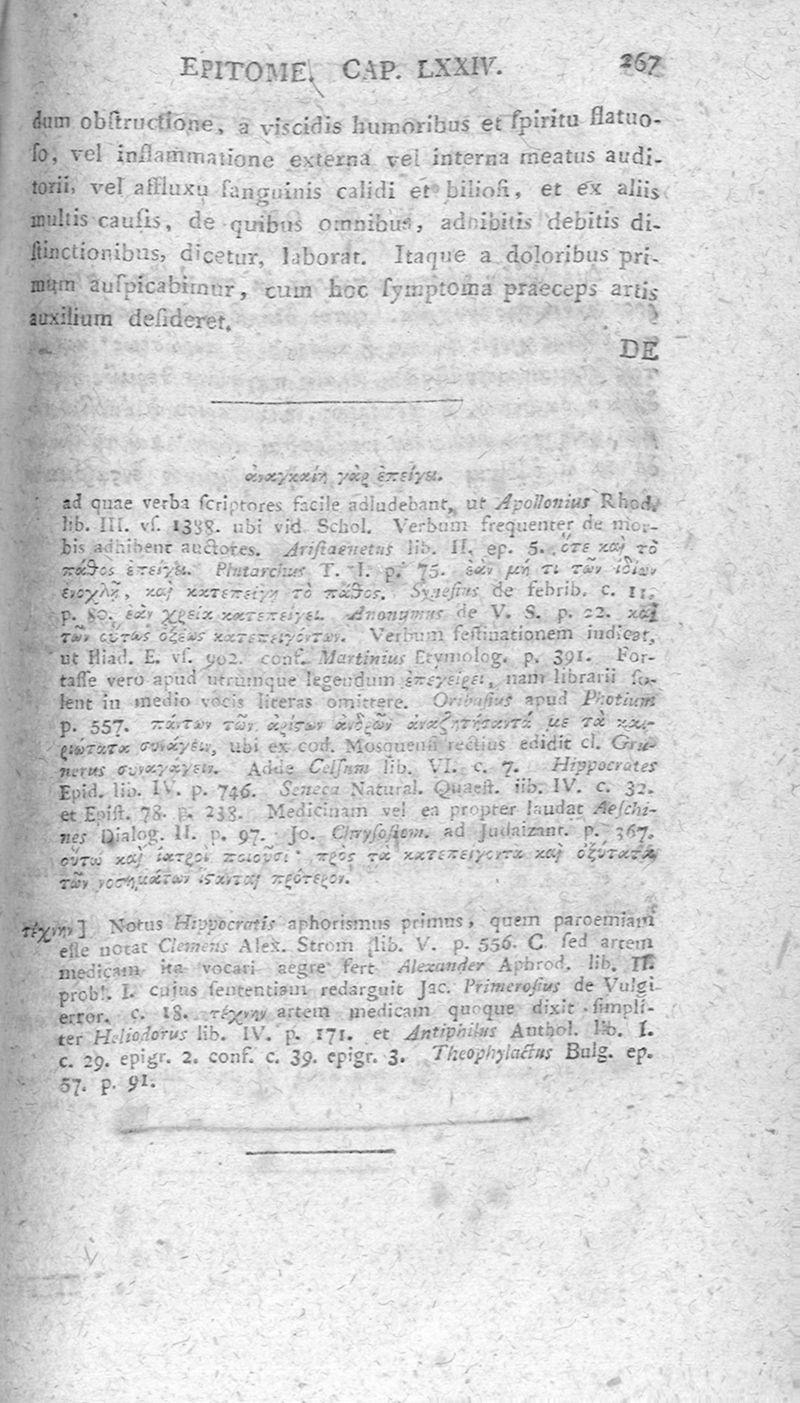 EPITOME. CAP. LXXIV. 267
dum obſtructione, a viscidis humoribus et ſpiritu flatuo-
ſo, vel inflammatione externa vel interna meatus audi-
torii, vel affluxu ſanguinis calidi et bilioſi, et ex aliis
multis cauſis, de quibus omnibus, adhibitis debitis di-
ſtinctionibus, dicetur, laborat. Itaque a doloribus pri-
mum auſpicabimur, cum hoc ſymptoma praeceps artis
auxilium deſideret.
DE
ἀναγκαίη γὰρ ἐπείγει.
ad quae verba ſcriptores facile adludebant, ut Apollonius Rhod.
lib. III. vſ. 1388. ubi vid. Schol. Verbum frequenter de mor-
bis adhibent auctores. Ariſtaenetus lib. II. ep. 5. ὅτε καὶ τὸ
πάθος ἐπείγει. Plutarchus T. I. p. 75. ἐὰν μή τι τῶν ἰδίων
ἐνοχλῇ, καὶ κατεπείγῃ τὸ πάθος. Syneſius de febrib. c. 11.
p. 80. ἐὰν χρεία κατεπείγει. Anonymus de V. S. p. 22. καὶ
τῶν οὕτως ὀξέως κατεπειγόντων. Verbum feſtinationem indicat,
ut Iliad. E. vſ. 902. conf. Martinius Etymolog. p. 391. For-
taſſe vero apud utrumque legendum ἐπεγείρει, nam librarii ſo-
lent in medio vocis literas omittere. Oribaſius apud Photium
p. 557. πάντων τῶν ἀρίστων ἀνδρῶν ἀναζητήσαντά με τὰ και-
ριώτατα συνάγειν, ubi ex cod. Mosquenſi rectius edidit cl. Gru-
nerus συναγάγειν. Adde Celſum lib. VI. c. 7. Hippocrates
Epid. lib. IV. p. 746. Seneca Natural. Quaeſt. lib. IV. c. 32.
et Epiſt. 78. p. 238. Medicinam vel ea propter laudat Aeſchi-
nes Dialog. II. p. 97. Jo. Chryſoſtom. ad Judaizant. p. 367.
οὕτω καὶ ἰατροὶ ποιοῦσι· πρὸς τὰ κατεπείγοντα καὶ ὀξύτατα
τῶν νοσημάτων ἵστανται πρότερον.
τέχνην] Notus Hippocratis aphorismus primus, quem paroemiam
eſſe notat Clemens Alex. Strom lib. V. p. 556. C. ſed artem
medicam ita vocari aegre fert Alexander Aphrod. lib. II.
probl. I. cujus ſententiam redarguit Jac. Primeroſius de Vulgi
error. c. 18. τέχνην artem medicam quoque dixit ſimpli-
ter Heliodorus lib. IV. p. 171. et Antiphilus Anthol. lib. I.
c. 29. epigr. 2. conf. c. 39. epigr. 3. Theophylactus Bulg. ep.
57. p. 91.